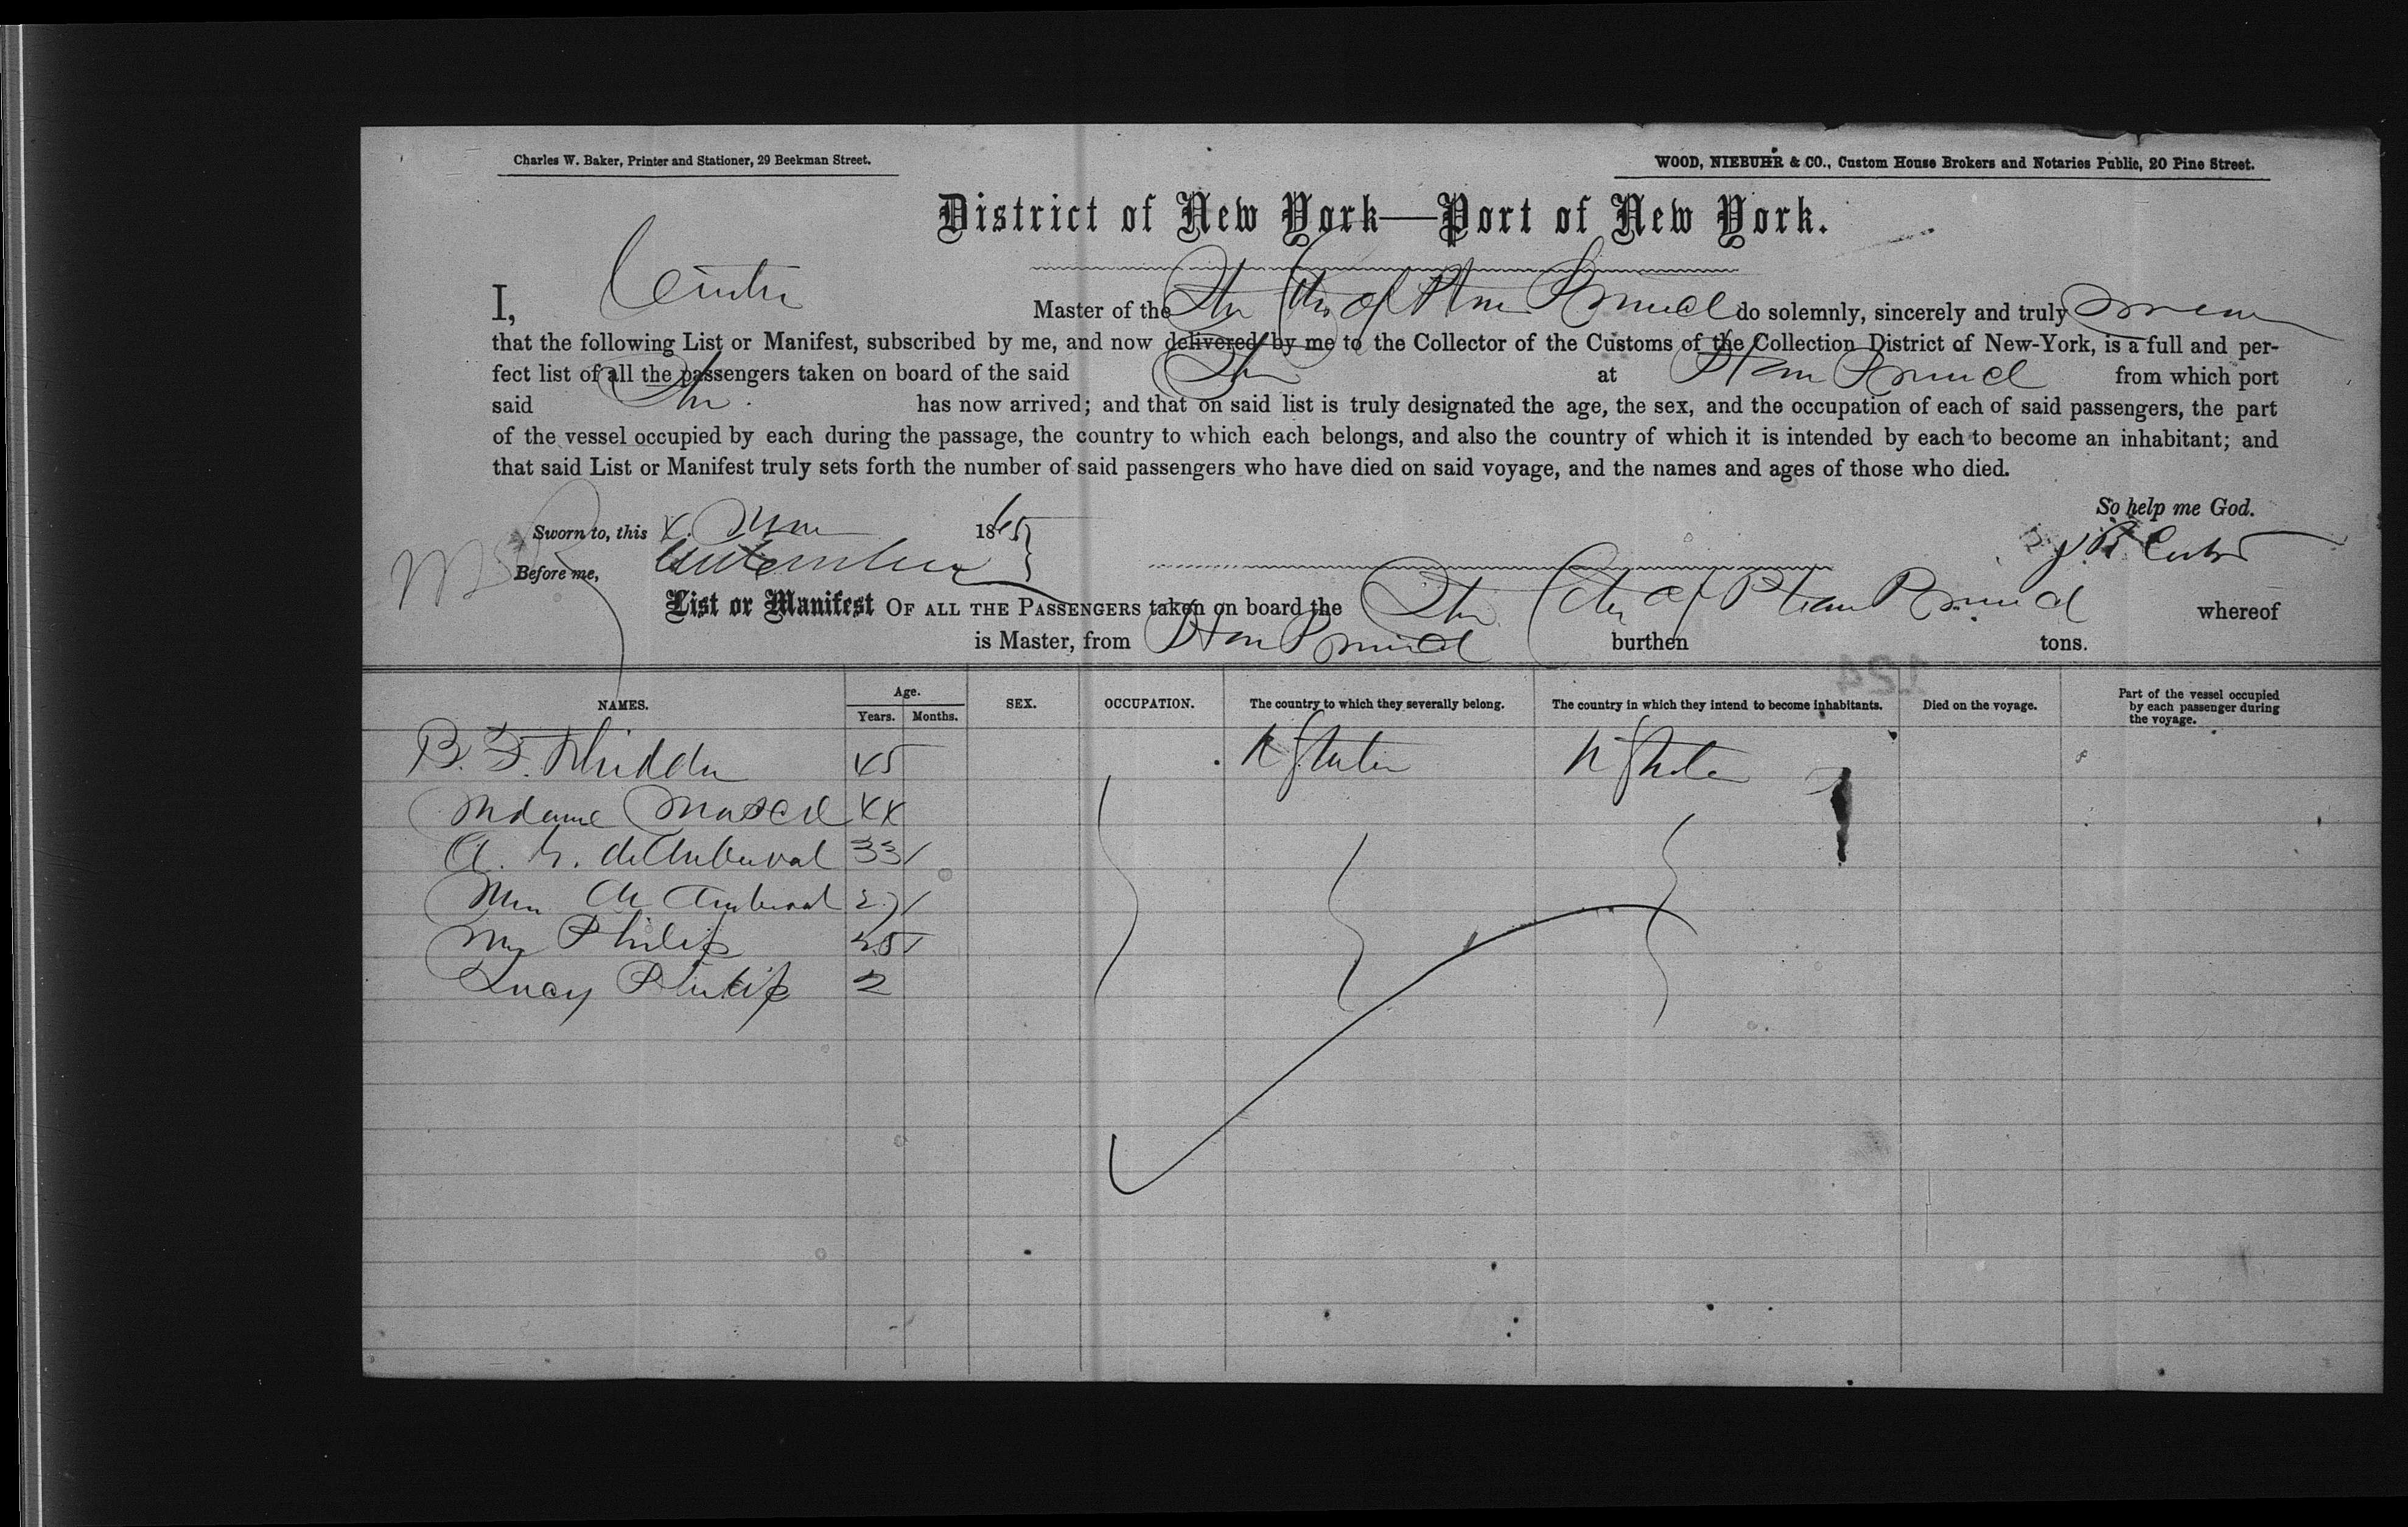 Charles W. Baker, Printer and Stationer, 29 Beekman Street.
WOOD, NIEBUHR & CO., Custom House Brokers and Notaries Public, 20 Pine Street.
District of New York—Port of New York.
I, Master of the Str City of Port au Prince do solemnly, sincerely and truly swear
that the following List or Manifest, subscribed by me, and now delivered by me to the Collector of the Customs of the Collection District of New-York, is a full and per-
fect list of all the passengers taken on board of the said Str at from which port
said Str. has now arrived; and that on said list is truly designated the age, the sex, and the occupation of each of said passengers, the part
of the vessel occupied by each during the passage, the country to which each belongs, and also the country of which it is intended by each to become an inhabitant; and
that said List or Manifest truly sets forth the number of said passengers who have died on said voyage, and the names and ages of those who died.
So help me God.
Sworn to, this 1865
Before me,
List or Manifest OF ALL THE PASSENGERS taken on board the Str City of whereof
is Master, from burthen tons.
124
NAMES. Age. Years. Months. SEX. OCCUPATION. The country to which they severally belong. The country in which they intend to become inhabitants. Died on the voyage. Part of the vessel occupied by each passenger during the voyage.
B. F. Whidden 45 U States U States
Madame 44
A. G. 33
Mrs 27
Mrs Philips 25
Lucy Philips 2